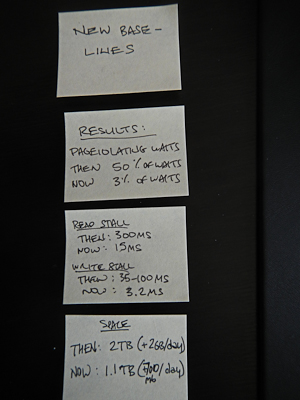 NEW BASE-
LINES
RESULTS:
PAGEIOLATING WAITS
THEN 50% OF WAITS
NOW 3% OF WAITS
READ STALL
THEN: 300MS
NOW: 15MS
WRITE STALL
THEN: 35-100MS
NOW: 3.2MS
SPACE
THEN: 2TB (+2GB/day)
NOW: 1.1TB (+700/day)
MB